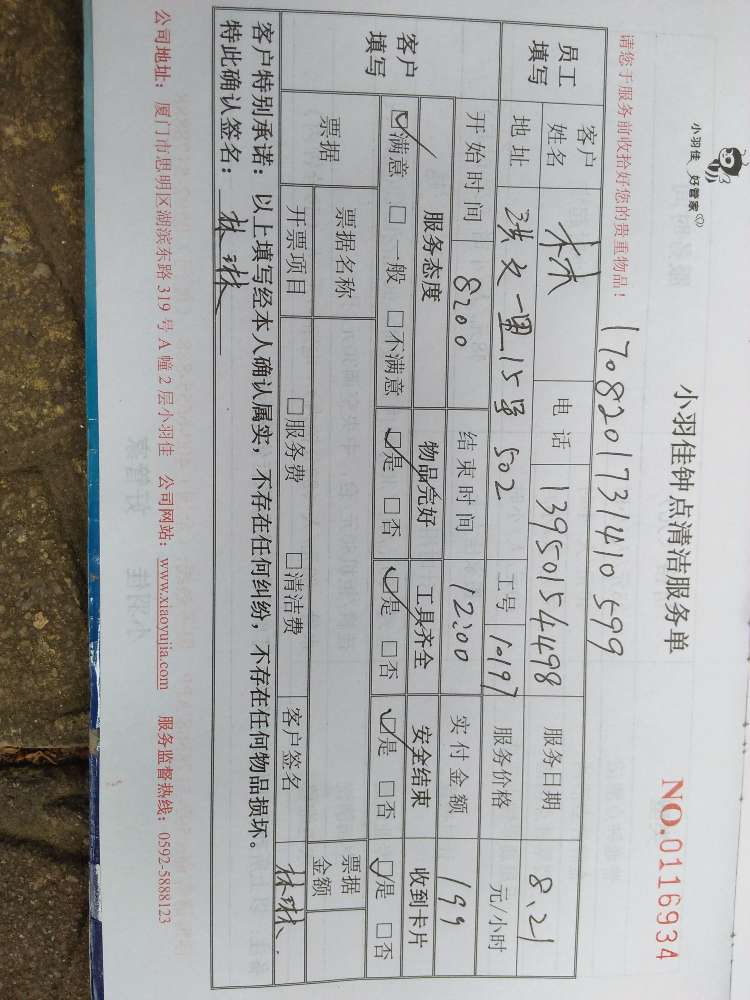 小羽佳 好管家
小羽佳钟点清洁服务单
NO.0116934
请您于服务前收拾好您的贵重物品！
1708201731410599
员工填写 客户姓名 林 电话 13950154498 服务日期 8.21
地址 洪文一里15号502 工号 1-197 服务价格 元/小时
开始时间 8:00 结束时间 12:00 实付金额 199
客户填写 服务态度 物品完好 工具齐全 安全结束 收到卡片
☑满意 □一般 □不满意 ☑是 □否 ☑是 □否 ☑是 □否 ☑是 □否
票据 票据名称 票据金额
开票项目 □服务费 □清洁费 客户签名 林琳
客户特别承诺：以上填写经本人确认属实，不存在任何纠纷，不存在任何物品损坏。
特此确认签名：林琳
公司地址：厦门市思明区湖滨东路 319 号 A 幢 2 层小羽佳 公司网站：www.xiaoyujia.com 服务监督热线：0592-5888123